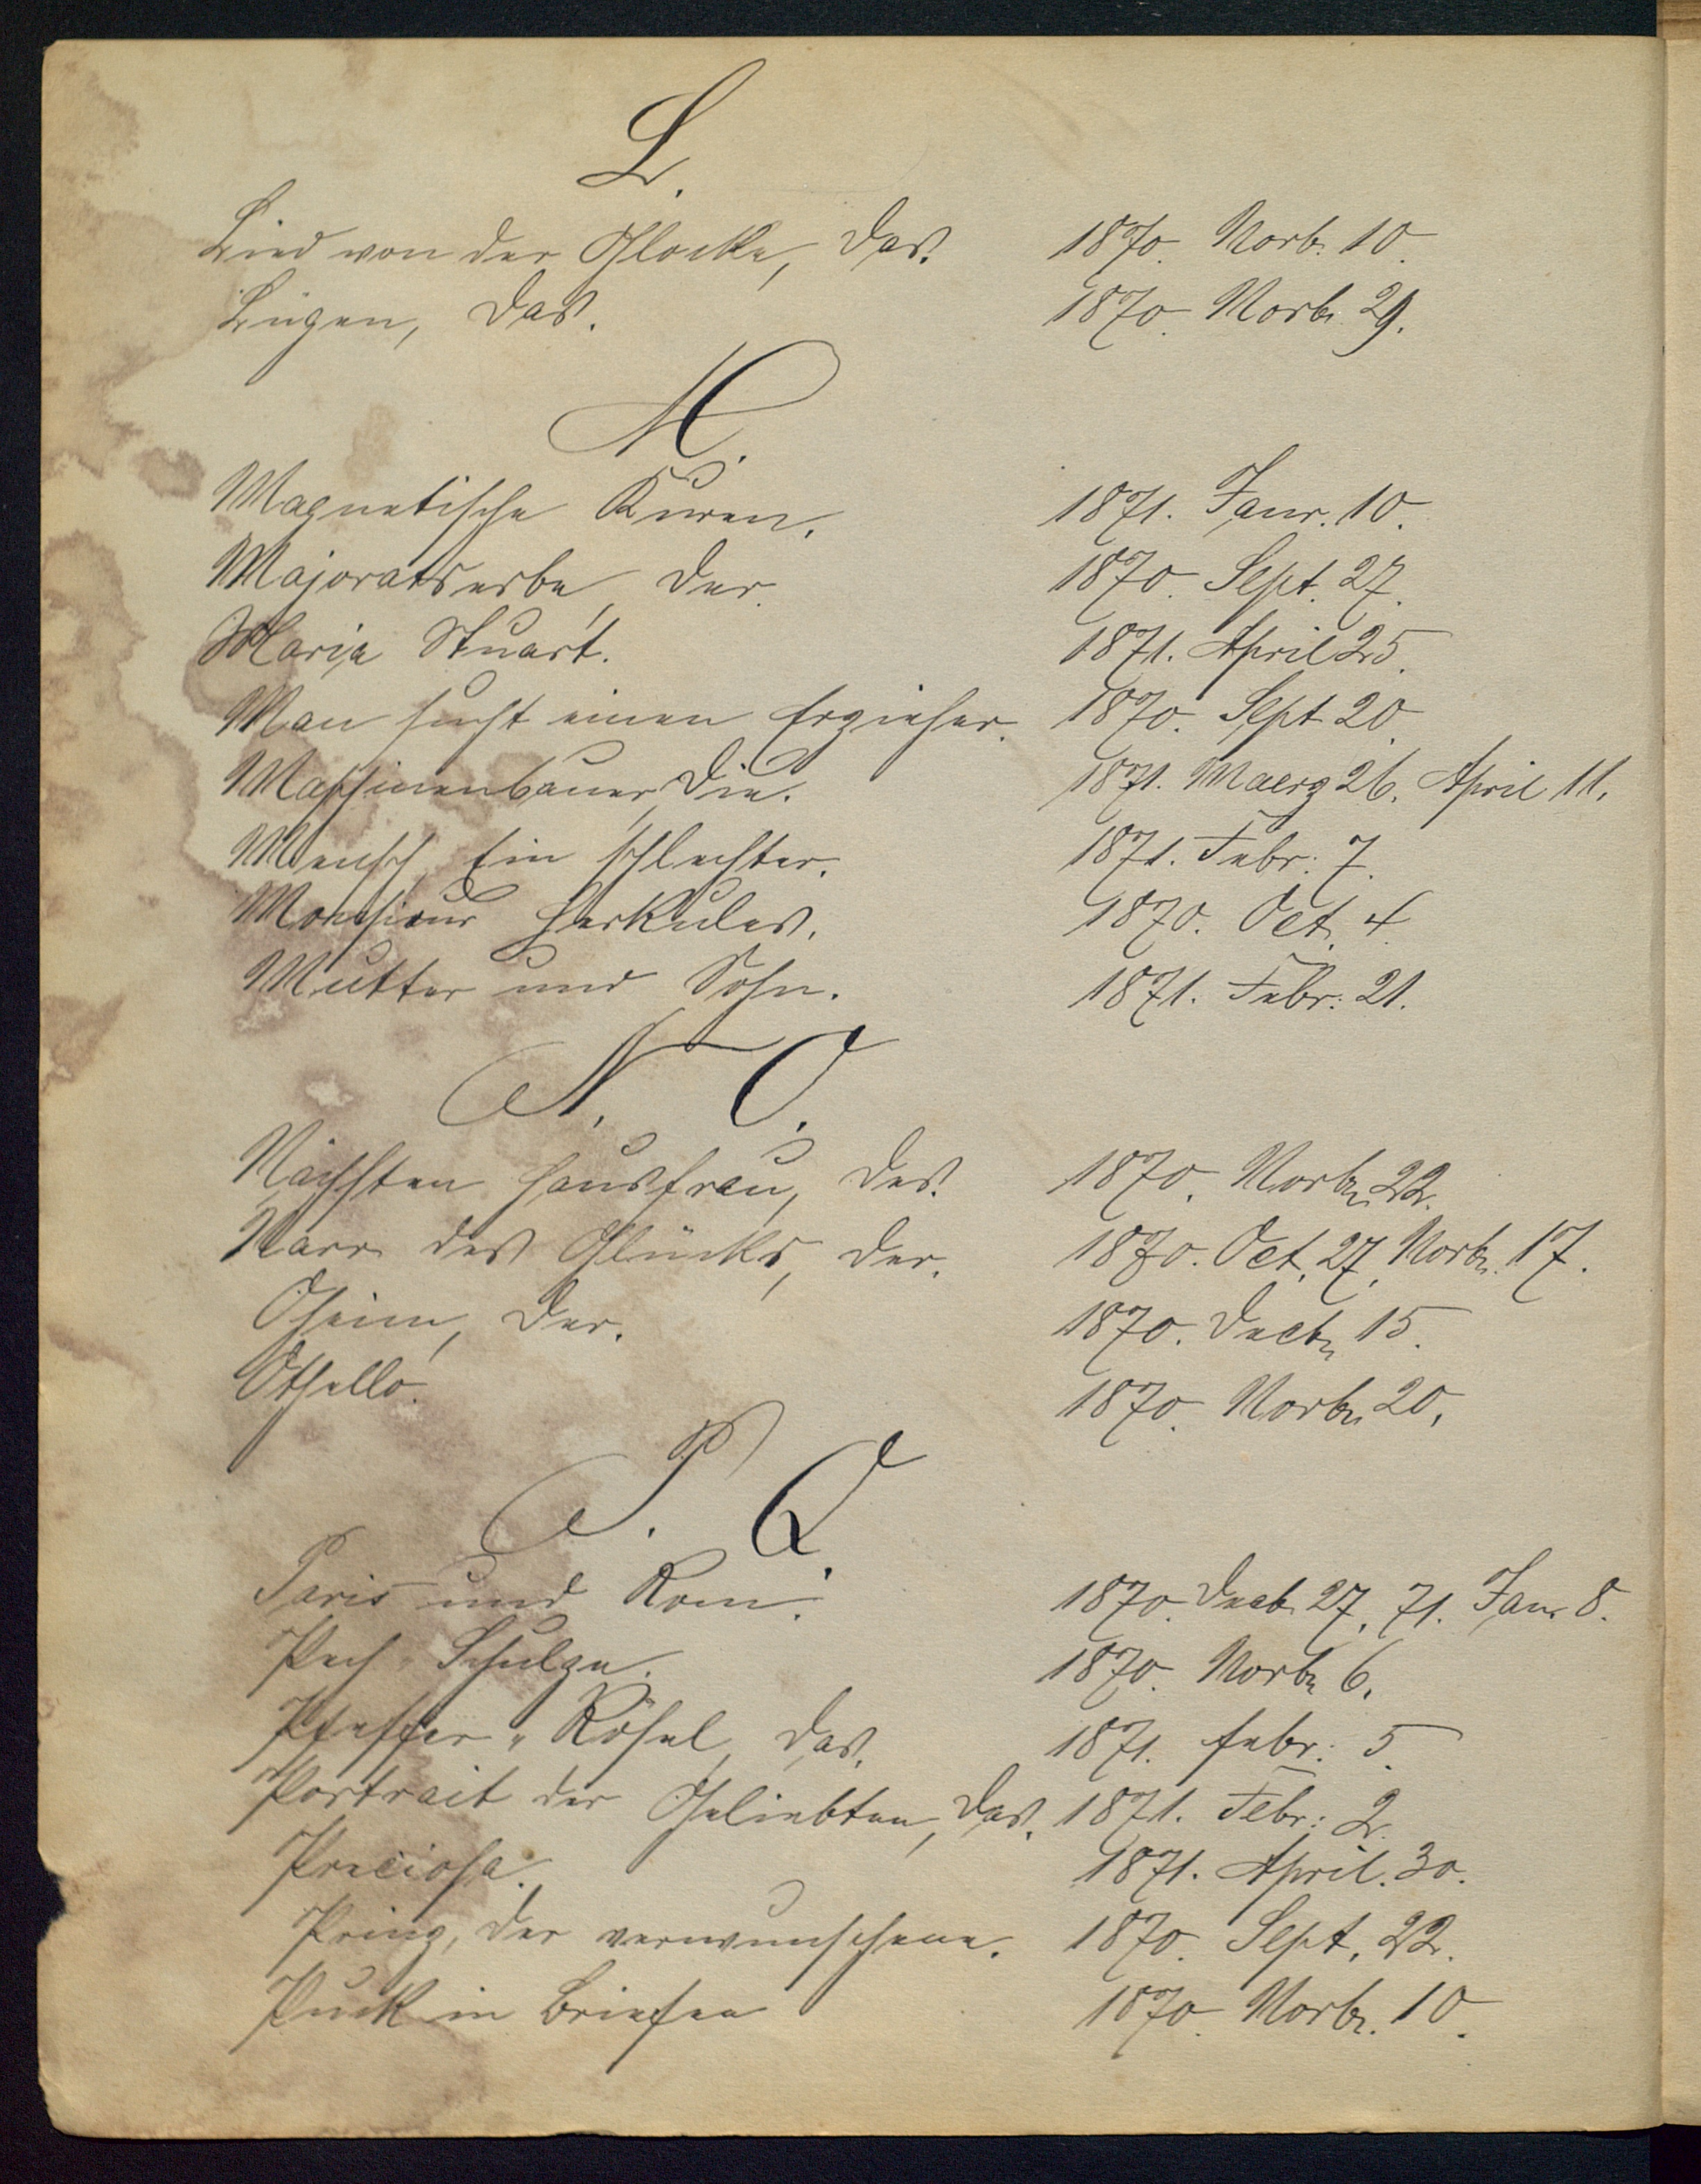 L.
Lied von der Glocke, Das. 1870. Novb. 10.
Lügen, Das. 1870. Novbr. 29.
M.
Magnetische Kuren. 1871. Janr. 10.
Majoratserbe, Der. 1870. Sept. 27.
Maria Stuart. 1871. April 25.
Man sucht einen Erzieher. 1870. Sept 20.
Maschinenbauer, Die. 1871. Maerz 26. April 11.
Mensch, Ein schlechter. 1871. Febr: 7.
Monsieur Herkules. 1870. Oct. 4.
Mutter und Sohn. 1871. Febr: 21.
N. O.
Nächsten Hausfrau, Des. 1870. Novbr. 22.
Narr des Glücks, Der. 1870. Oct. 27. Novbr. 17.
Oheim, Der. 1870. Decbr. 15.
Othello. 1870. Novbr. 20.
P. Q.
Paris und Rom. 1870. Decb. 27. 71. Jan. 8.
Pech-Schulze. 1870. Novbr. 6.
Pfeffer-Rösel, Das. 1871. Febr: 5.
Portrait der Geliebten, Das. 1871. Febr: 2.
Preciosa. 1871. April. 30.
Prinz, Der verwunschene. 1870. Sept. 22.
Puck in Briefen 1870. Novbr. 10.